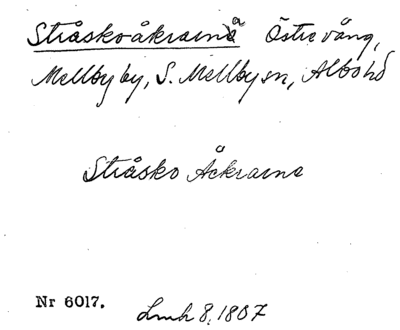 Stråskoåkrarna Östre vång,
Mellby by, S. Mellby sn, Albo hd
Stråsko Åckrarne
Nr 6017.
Lmh 8, 1807